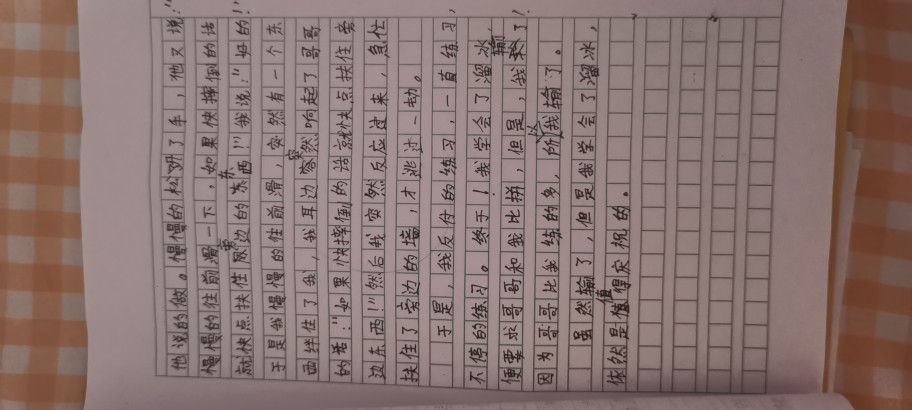 他说的做。慢慢的松开了手，他又说："
慢慢的往前滑一下，如果快摔倒的话
就快点扶住旁边的东西！"我说："好的！"
于是我慢慢的往前滑，突然有一个东
西绊住了我，我耳边突然响起了哥哥
的话："如果快摔倒的话就快点扶住旁
边东西！"然后我突然反应过来，急忙
扶住了旁边的墙，才逃过一劫。
于是，我反复的练习，一直练习，
不停的练习。终于！我学会了溜冰，
便要求哥哥和我比拼，但是，我输了！
因为哥哥比我练的多，所以我输了。
虽然输了，但是我学会了溜冰，
依然是值得庆祝的。